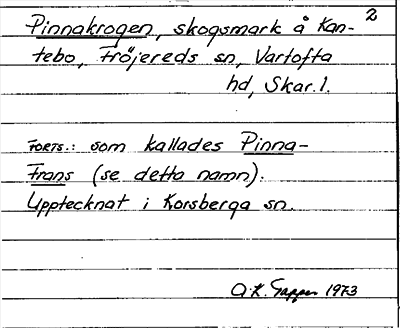 2
Pinnakrogen, skogsmark å Kan-
tebo, Fröjereds sn, Vartofta
hd, Skar. l.
FORTS.: som kallades Pinna-
Frans (se detta namn).
Upptecknat i Korsberga sn.
1973